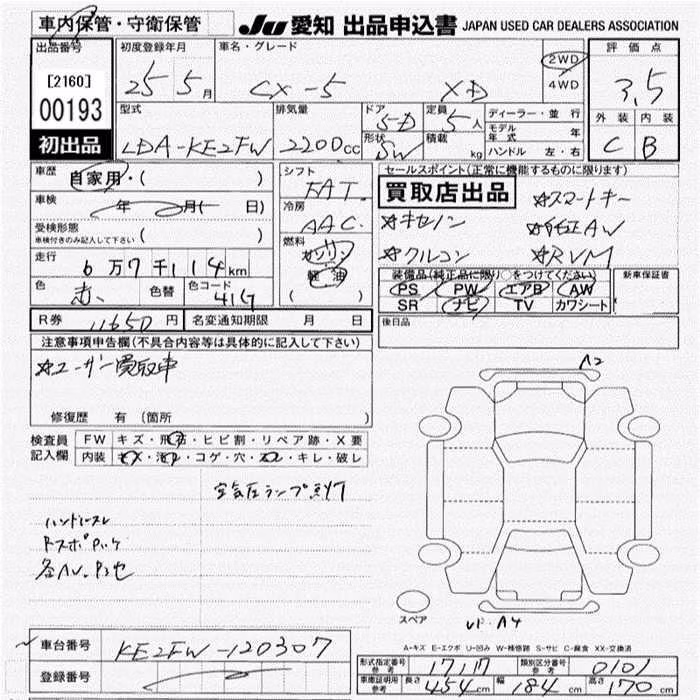 車内保管・守衛保管 JU 愛知 出品申込書 JAPAN USED CAR DEALERS ASSOCIATION
出品番号 初度登録年月 車名・グレード 2WD 4WD 評価点
[2160] 00193 25 5月 CX-5 XD 3,5
型式 排気量 ドア 形状 定員 積載 ディーラー・並行 モデル年式 年 ハンドル 左・右 外装 内装
初出品 LDA-KE2FW 2200cc 5D SW 5人 kg C B
車歴 自家用・( ) シフト FAT. セールスポイント(正常に機能するものに限ります)
車検 年 月( 日) 冷房 AAC. 買取店出品 ☆スマートキー
受検形態 車検付きのみ記入して下さい ( ) 燃料 ガソリン 軽油 ( ) ☆キセノン ☆純正AW
走行 6万7千114km ☆クルコン ☆RVM
色 赤 色替 色コード 41G 装備品(純正品に限り○をつけてください) 新車保証書
PS PW エアB AW
SR ナビ TV カワシート
R券 11650円 名変通知期限 月 日 後日品
注意事項申告欄(不具合内容等は具体的に記入して下さい)
☆ユーザー買取車
A2
修復歴 有 (箇所 )
検査員記入欄 FW キズ・飛石・ヒビ割・リペア跡・X要
内装 キズ・汚レ・コゲ・穴・スレ・キレ・破レ
空気圧ランプ点灯
ハンドルスレ
スペア
A-キズ E-エクボ U-凹み W-補修跡 S-サビ C-腐食 XX-交換済
車台番号 KE2FW-120307
登録番号
型式指定番号 参考 17117 類別区分番号 参考 0101
車庫証明用 参考 長さ 454cm 幅 184cm 高さ 170cm